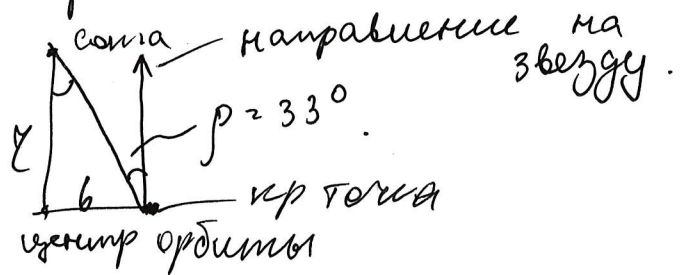 сонца направление на
звезду.
ρ = 33°.
r
b кр точка
центр орбиты